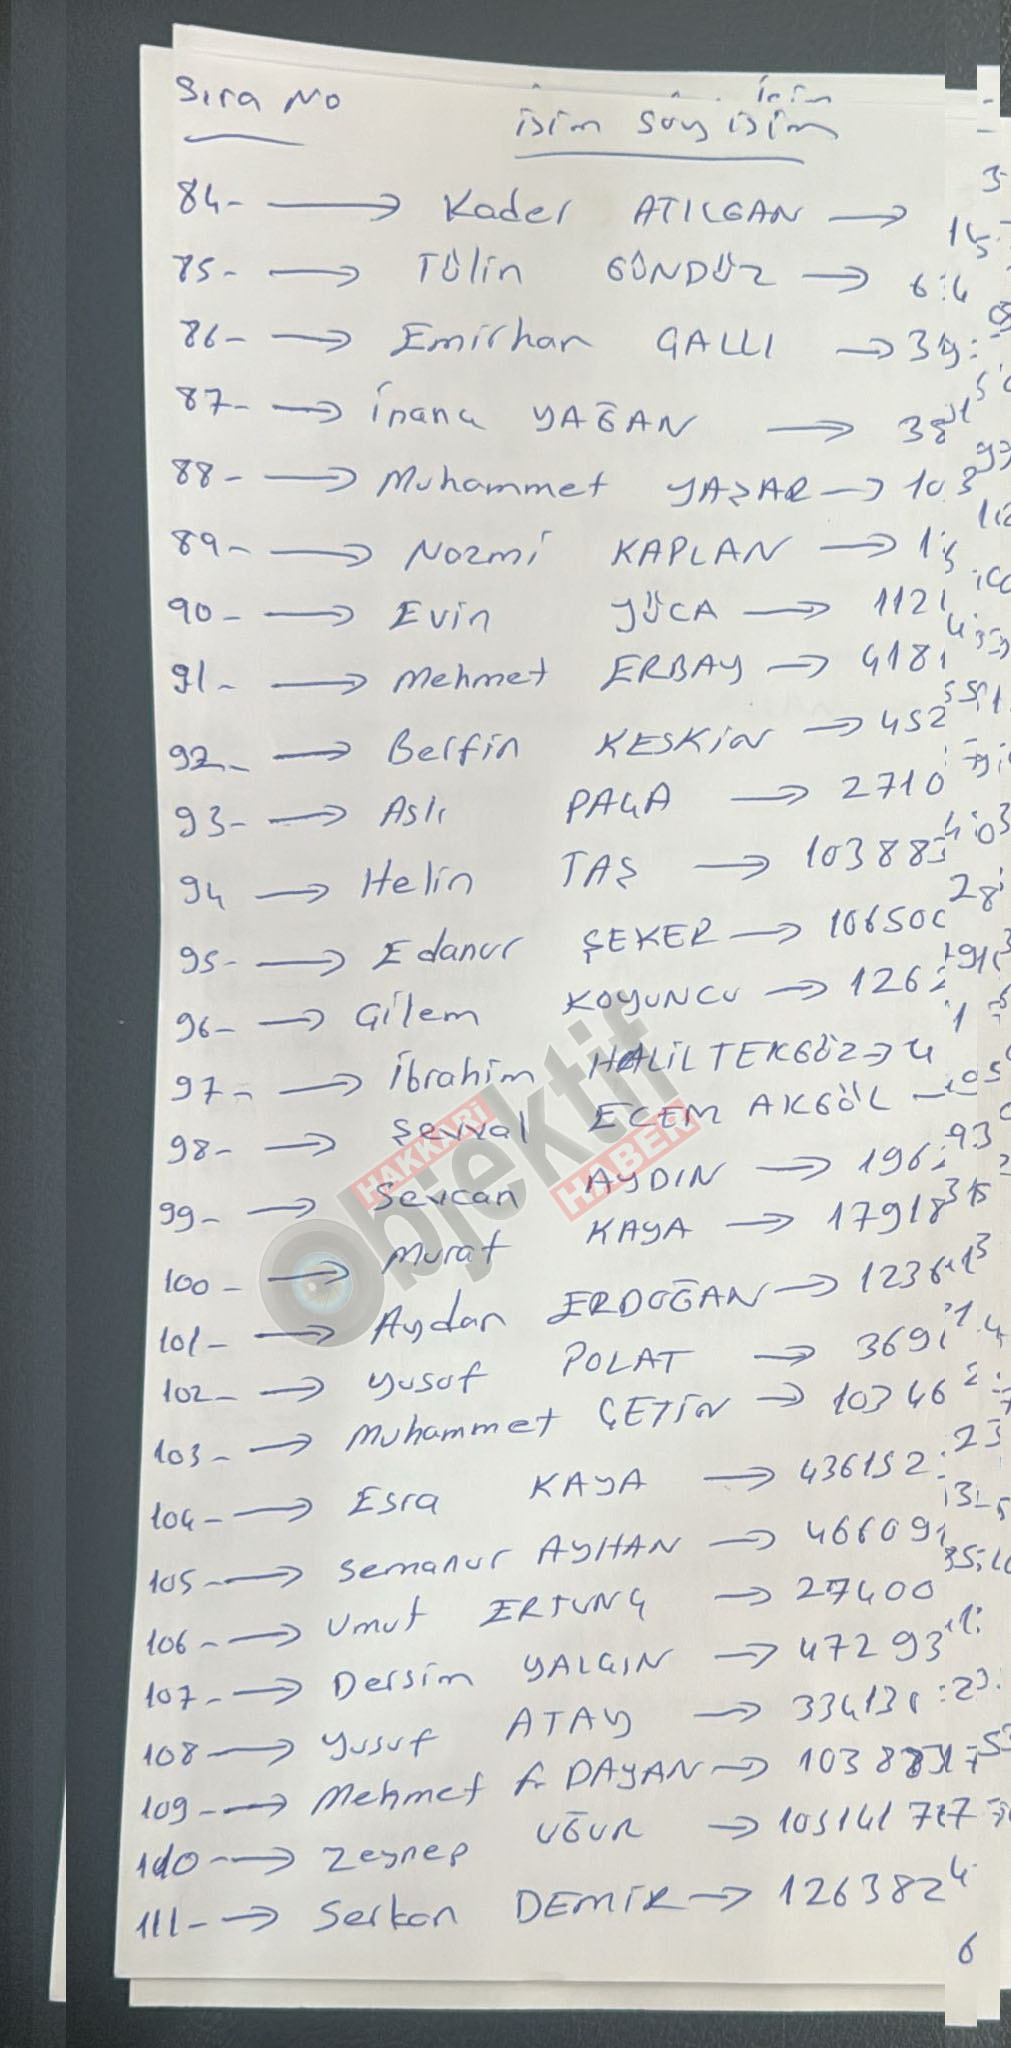 Sıra No
isim Soy isim
84- → Kader ATILGAN →
75- → Tülin GÜNDÜZ → 6
86- → Emirhan GALLI → 39
87- → İnana YAĞAN → 38
88- → Muhammet YAŞAR → 103
89- → Nozmi KAPLAN → 1
90- → Evin YÜCA → 1121
91- → Mehmet ERBAY → 4181
92- → Berfin KESKİN → 452
93- → Aslı PAÇA → 2710
94 → Helin TAŞ → 103883
95- → Edanur ŞEKER → 106500
96- → Çilem KOYUNCU → 1262
97- → İbrahim HALİL TEKGÖZ → 4
98- → Şevval ECEM AKGÖL
99- → Sevcan AYDIN → 196
100- → Murat KAYA → 17918
101- → Aydan ERDOĞAN → 1236
102- → Yusuf POLAT → 369
103- → Muhammet ÇETİN → 10346
104- → Esra KAYA → 436152
105- → Semanur AYHAN → 466091
106- → Umut ERTUNÇ → 27400
107- → Dersim YALÇIN → 47293
108 → Yusuf ATAY → 33413
109- → Mehmet f. DAYAN → 10388
110 → Zeynep UĞUR → 105141
111- → Serkan DEMİR → 126382
6
HAKKARİ
Objektif
HABER